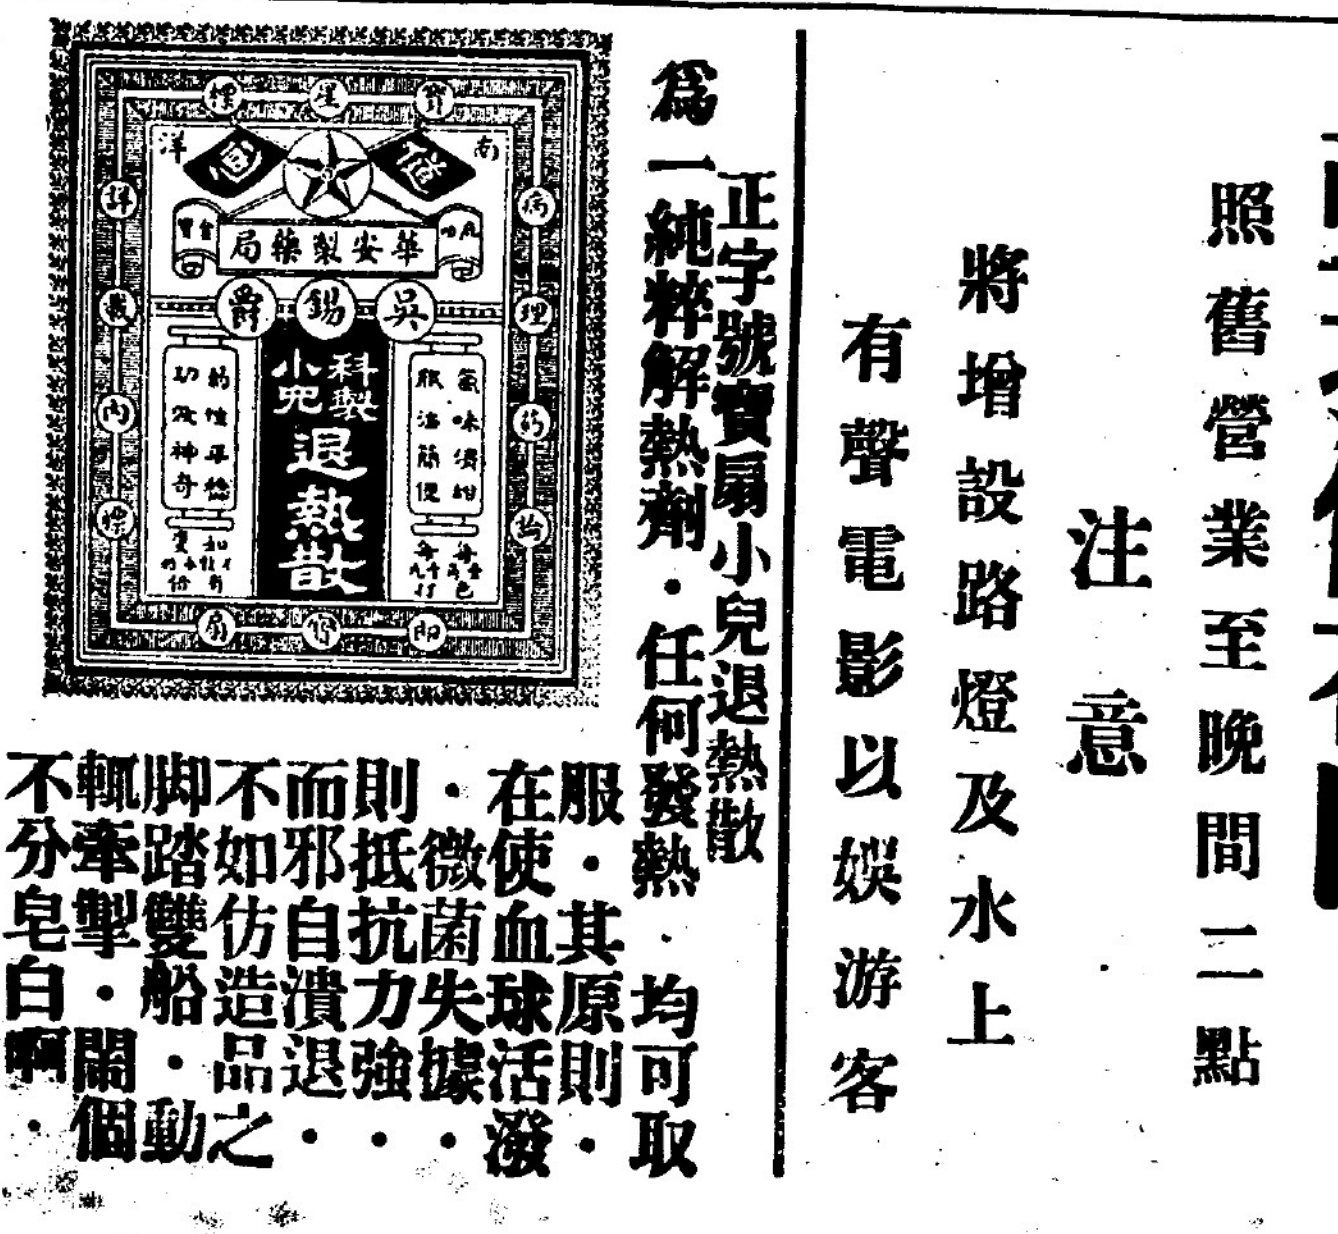 照舊營業至晚間二點
注意
將增設路燈及水上
有聲電影以娛游客
正字號寶扇小兒退熱散
為一純粹解熱劑・任何發熱・均可取
服・其原則・
在使血球活潑
・微菌失據・
則抵抗力強・
而邪自潰退・
不如仿造品之
脚踏雙船・動
輒牽掣・鬧個
不分皂白啊・
標星寶
南洋
信
華安製藥局
吳錫爵
科製
小兒
退熱散
氣味濃甜
服法簡便
葯性平穩
功效神奇
病理葯論
詳載內標
即寶扇